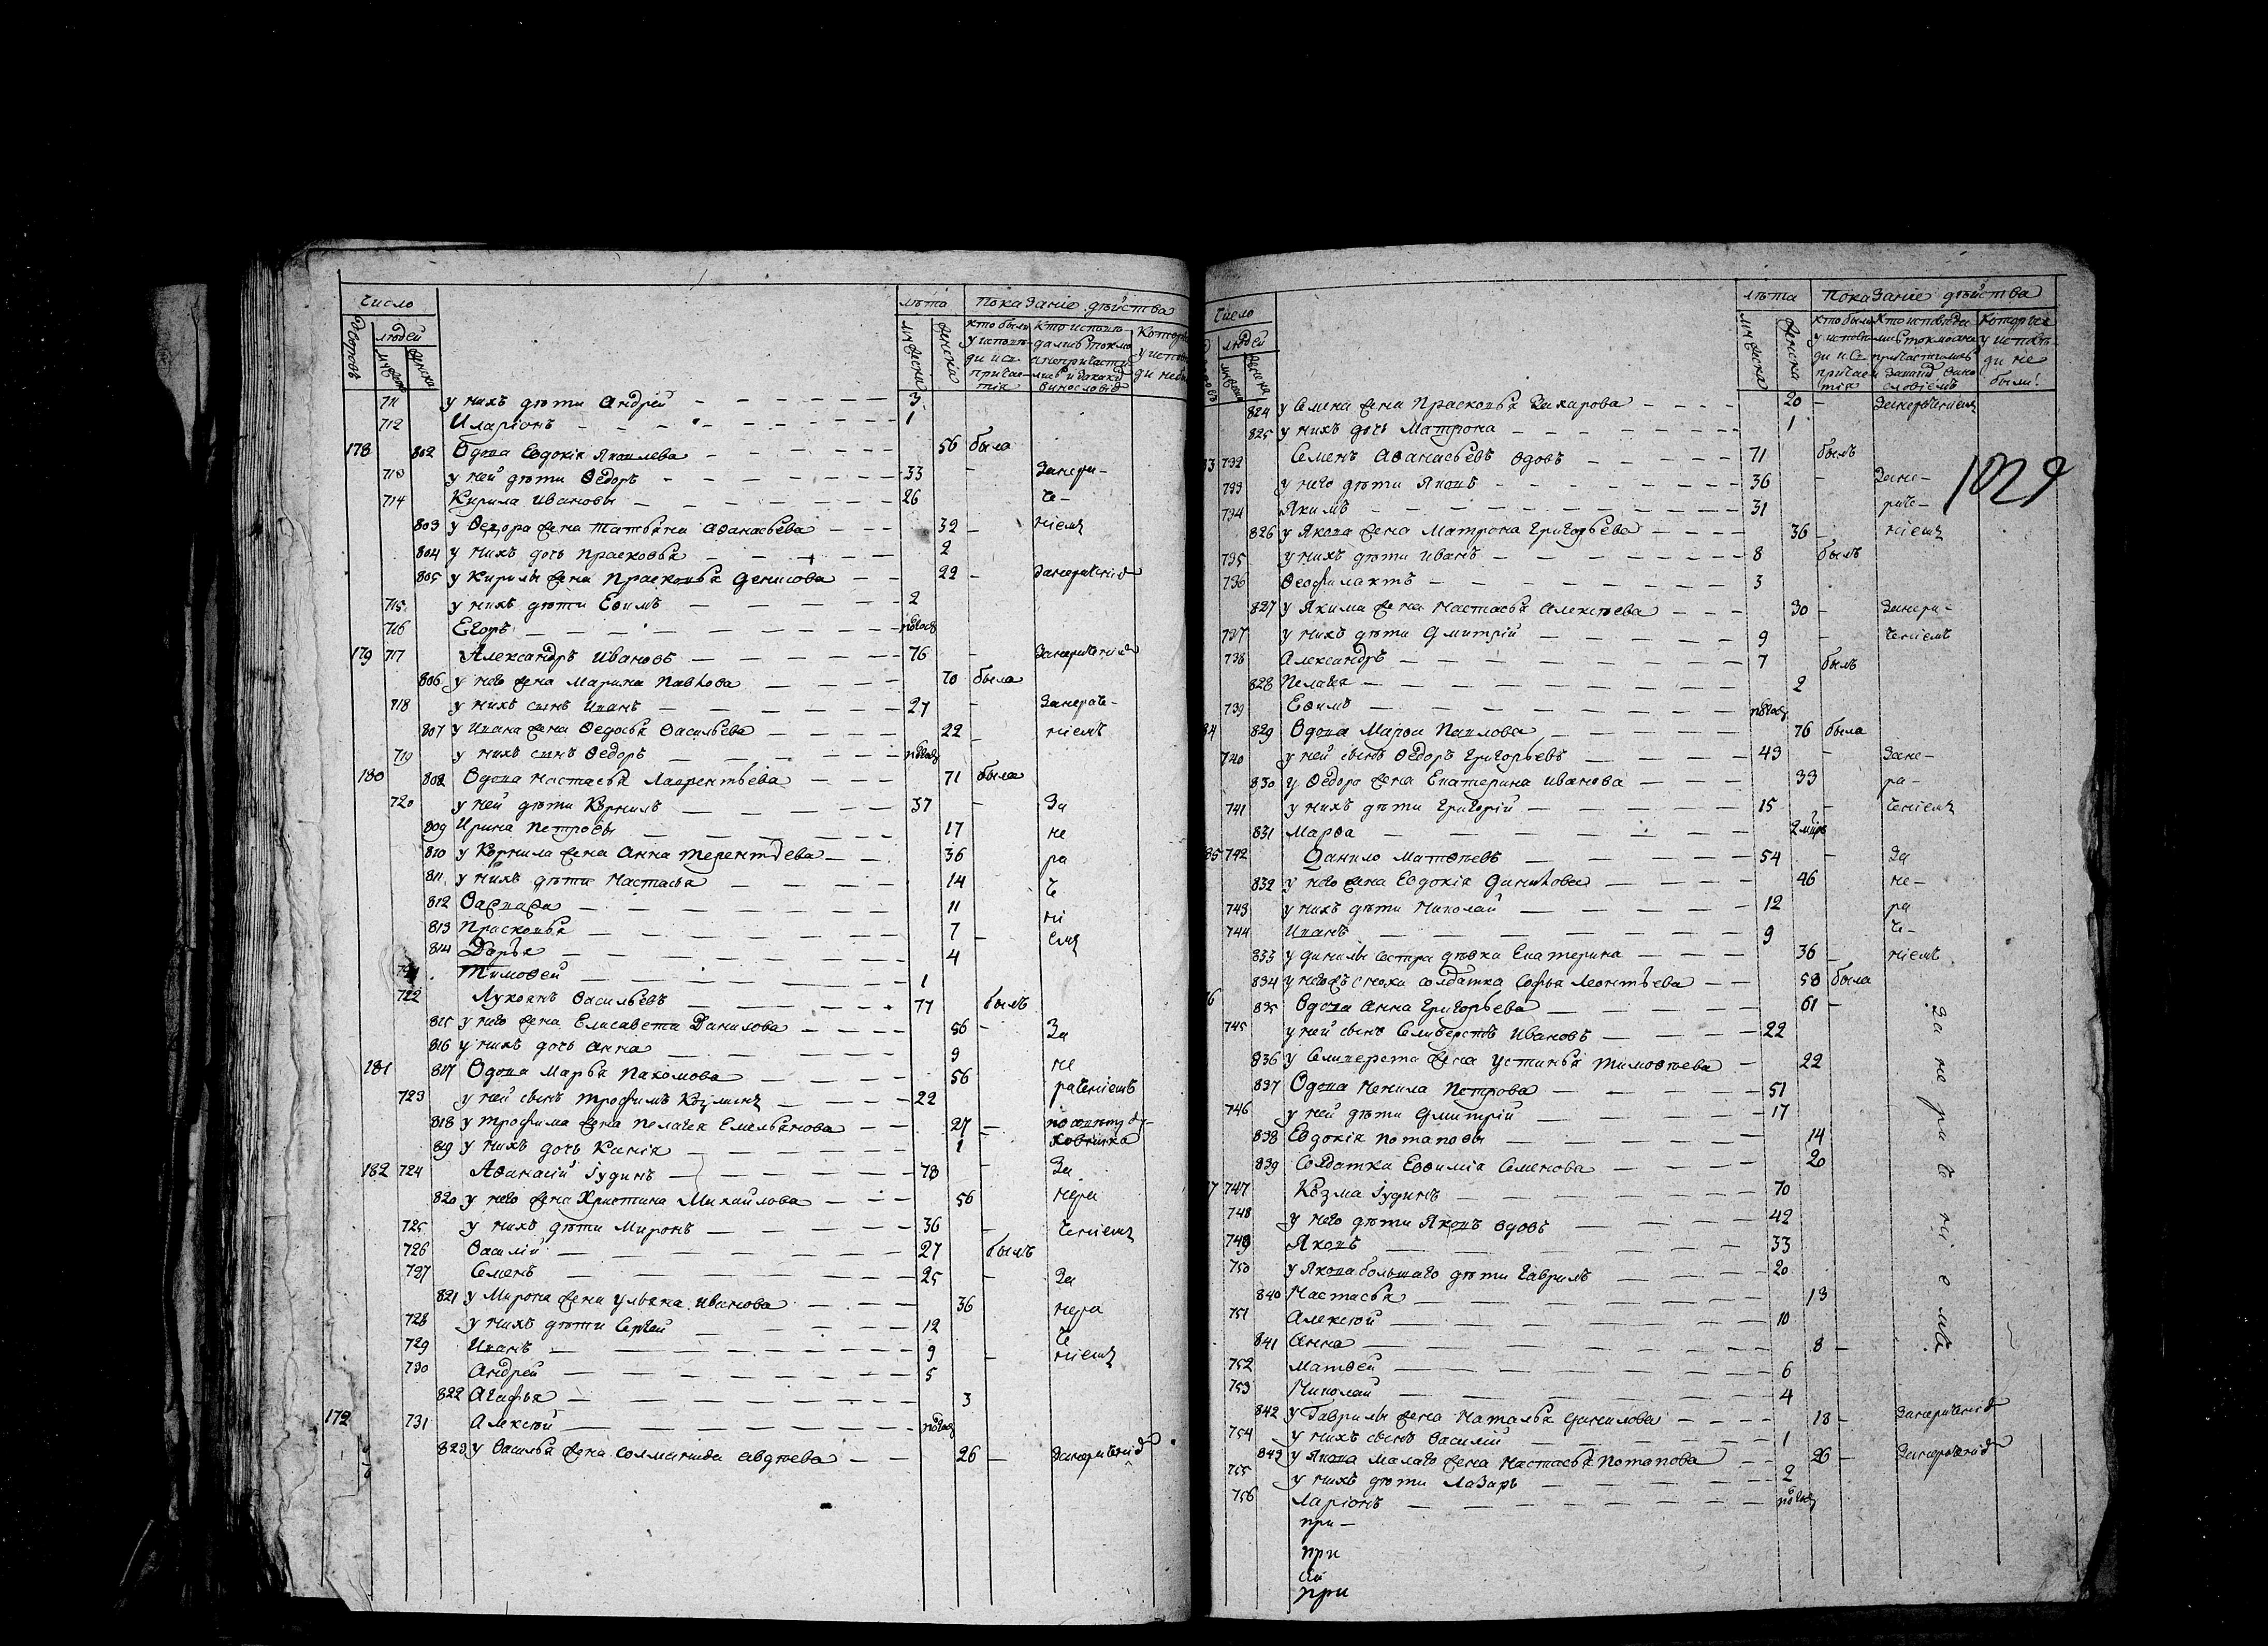 Число
лѣта
Показаніе дѣйства
Дворовъ
людей
мужеска
женска
мужеска
женска
кто были
у исповѣ-
ди и св.
причас-
тія
кто исповѣ-
дались токмо
а непричасти-
лись и за какимъ
винословіемъ
Которые
у исповѣ
ди небы
711 у нихъ дѣти Андрей 3
712 Иларіонъ 1
178 802 Вдова Евдокія Яковлева 56 была
713 у ней дѣти Ѳедоръ 33 - Занера-
714 Кирила Ивановы 26 че-
803 у Ѳедора жена Татьяна Аѳанасьева 32 - ніемъ
804 у нихъ дочь Прасковья 2
805 у Кирилы жена Прасковья Денисова 22 - занераченіе
715 у нихъ дѣти Еѳимъ 2
716 Егоръ полгод
179 717 Александръ Ивановъ 76 - занераченіе
806 у него жена Марина Павлова 70 была
718 у нихъ сынъ Иванъ 27 - Занераче-
807 у Ивана жена Ѳедосья Васильева 22 - ніемъ
719 у нихъ сынъ Ѳедоръ полгод
180 808 Вдова Настасья Лаврентьева 71 была
720 у ней дѣти Корнилъ 37 - За
809 Ирина Петровы 17 не
810 у Корнила жена Анна Терентьева 36 ра
811 у нихъ дѣти Настасья 14 че
812 Варвара 11 ні
813 Прасковья 7 - емъ
814 Дарья 4
721 Тимоѳей 1
722 Лукоянъ Васильевъ 77 былъ
815 у него жена Елисавета Данилова 56 - За
816 у нихъ дочь Анна 9 не
181 817 Вдова Марья Пахомова 56 раченіемъ
723 у ней сынъ Трофимъ Козминъ 22
818 у Трофима жена Пелагея Емельянова 27 - по совѣту ду-
819 у нихъ дочь Ксенія 1 ховника
182 724 Аѳанасій Іудинъ 78 - За
820 у него жена Христина Михайлова 56 нера
725 у нихъ дѣти Миронъ 36 - ченіемъ
726 Василій 27 былъ
727 Семенъ 25 - За
821 у Мирона жена Ульяна Иванова 36 нера
728 у нихъ дѣти Сергей 12 че
729 Иванъ 9 - ніемъ
730 Андрей 5
822 Агафья 3
172 731 Алексѣй полгод
823 у Василья жена Соломанида Авдѣева 26 - Занераченіе
Число
лѣта
Показаніе дѣйства
людей
мужеска
женска
мужеска
женска
кто были
у исповѣ
ди и св.
причас
тія
Кто исповѣда
лись токмо а не
причастились
за какимъ вино
словіемъ
Которые
у исповѣ-
ди не
были
824 у Семена жена Прасковья Захарова 20 - Занераченіемъ
825 у нихъ дочь Матрона 1
3 732 Семенъ Аѳанасьевъ вдовъ 71 былъ
733 у него дѣти Яковъ 36 - Зане-
734 Якимъ 31 раче-
1029
826 у Якова жена Матрона Григорьева 36 - ніемъ
735 у нихъ дѣти Иванъ 8 былъ
736 Ѳеофилактъ 3
827 у Якима жена Настасья Алексѣева 30 - Занера-
737 у нихъ дѣти Дмитрій 9 - ченіемъ
738 Александръ 7 былъ
828 Пелагея 2
739 Еѳимъ полгод
4 829 Вдова Марѳа Павлова 76 была
740 у ней сынъ Ѳедоръ Григорьевъ 43 - Зане-
830 у Ѳедора жена Екатерина Иванова 33 ра-
741 у нихъ дѣти Григорій 15 - ченіемъ
831 Марѳа 2
5 742 Данило Матѳѣевъ 54 - За
832 у него жена Евдокія 46 не-
743 у нихъ дѣти Николай 12 ра
744 Иванъ 9 че-
833 у Данилы сестра дѣвка Екатерина 36 - ніемъ
834 у него сноха солдатка Софья Леонтьева 53 была
6 835 Вдова Анна Григорьева 61 -
745 у ней сынъ Селиверстъ Ивановъ 22
836 у Селиверста жена Устинья Тимоѳѣева 22
837 Вдова Ненила Петрова 51
746 у ней дѣти Дмитрій 17
838 Евдокія Потаповы 14
839 Солдатка Евѳимія Семенова 20
7 747 Козма Іудинъ 70
748 у него дѣти Яковъ вдовъ 42
749 Яковъ 33
750 у Якова большаго дѣти Гаврилъ 20
840 Настасья 13
751 Алексѣй 10
841 Анна 8 -
752 Матѳей 6
753 Николай 4
За не ра че ні е мъ
842 у Гаврилы жена Наталья Данилова 18 - Занераченіе
754 у нихъ сынъ Василій 1
843 у Якова малаго жена Настасья Потапова 26 - Занераченіе
755 у нихъ дѣти Лазарь 2
756 Ларіонъ полгод
при-
при
при